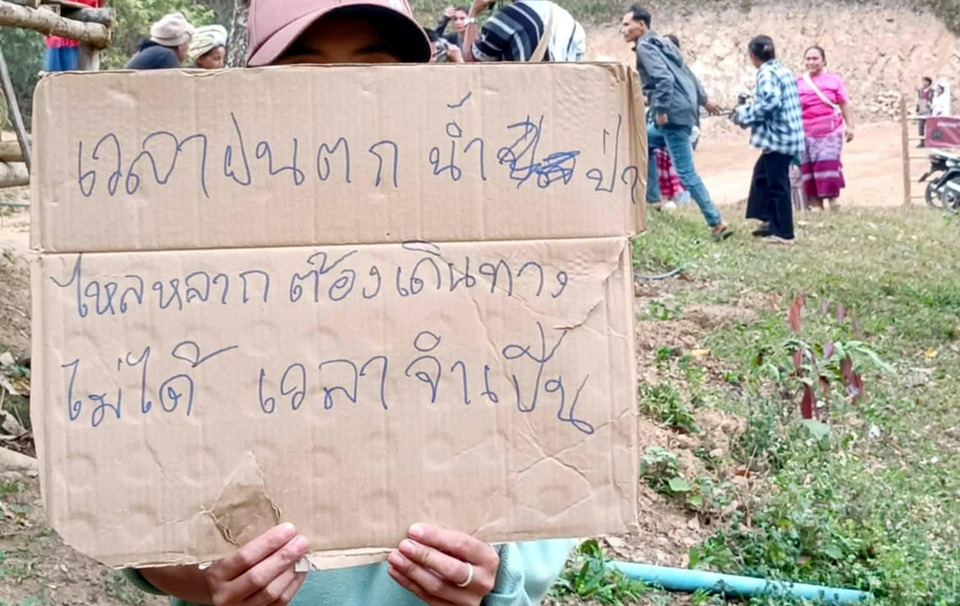 เวลาฝนตก น้ำ ป่า
ไหลหลาก ต้องเดินทาง
ไม่ได้ เวลาจำเป็น